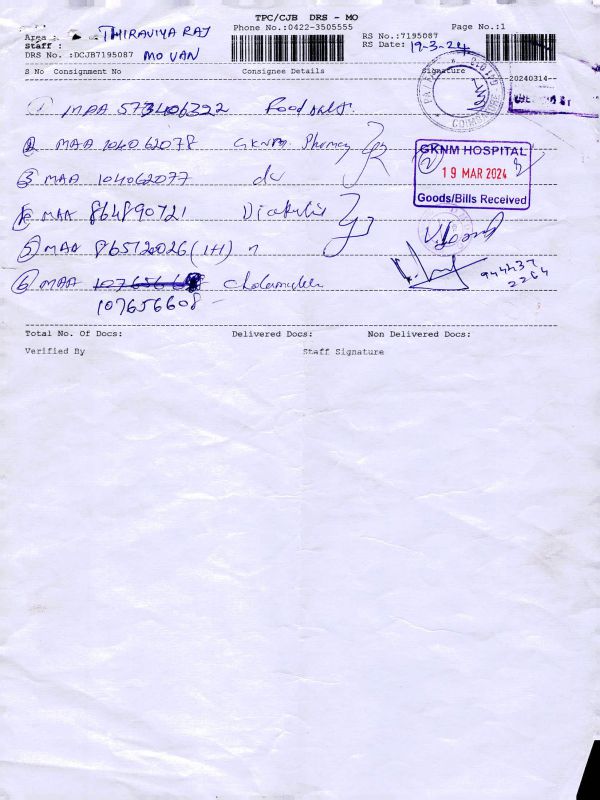 TPC/CJB DRS - MO
Area : THIRAVIYA RAJ Phone No.:0422-3505555 Page No.:1
Staff : RS No.:7195087
DRS No. :DCJB7195087 MO VAN RS Date: 19-3-24
S No Consignment No Consignee Details Signature
20240314--
1 MAA 573406322
2 MAA 104062078 GKNM Pharmacy
3 MAA 104062077 do
GKNM HOSPITAL
19 MAR 2024
Goods/Bills Received
4 MAA 864890721
5 MAA 86512026 (1+1) "
6 MAA
107656608
944437
2264
Total No. Of Docs: Delivered Docs: Non Delivered Docs:
Verified By Staff Signature